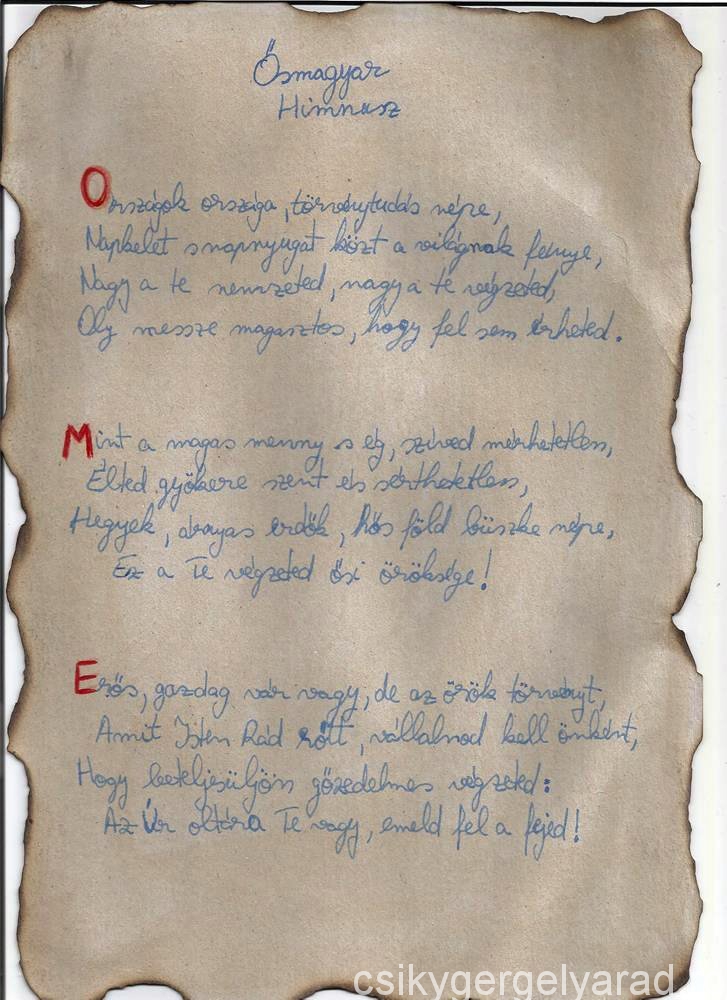 Ősmagyar
Himnusz
Országok országa, törvénytudás népe,
Napkelet s napnyugat közt a világnak fénye,
Nagy a te nemzeted, nagy a te végzeted,
Oly messze magasztos, hogy fel sem érheted.
Mint a magas menny s ég, szíved mérhetetlen,
Élted gyökere szent és sérthetetlen,
Hegyek, árnyas erdők, hős föld büszke népe,
Ez a Te végzeted ősi öröksége!
Erős, gazdag vár vagy, de az örök törvényt,
Amit Isten Rád rótt, vállalnod kell önként,
Hogy beteljesüljön győzedelmes végzeted:
Az Úr oltára Te vagy, emeld fel a fejed!
csikygergelyarad